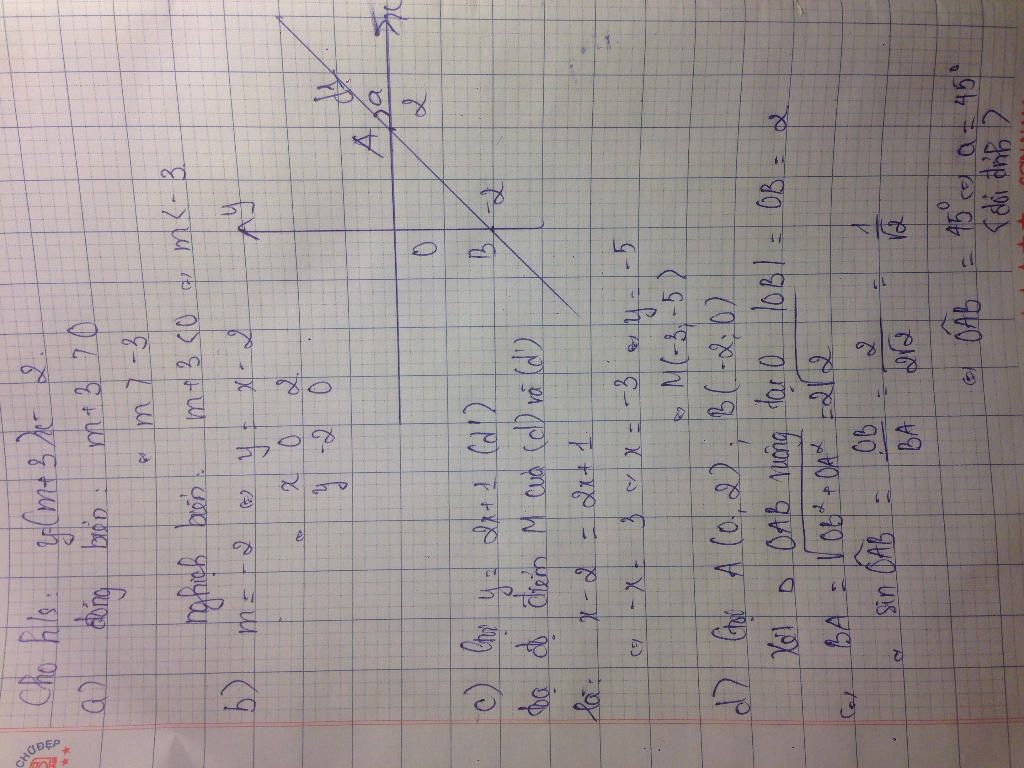 Cho h/s: y=(m+3)x-2.
a) đồng biến: m+3 > 0
⇔ m > -3
nghịch biến: m+3 < 0 ⇔ m < -3
b) m = -2 ⇔ y = x - 2
x 0 2
y -2 0
y
x
A
a
2
O
B
-2
c) Gọi y = 2x+1 (d')
Toạ độ điểm M của (d) và (d')
là: x - 2 = 2x + 1
⇔ -x = 3 ⇔ x = -3 ⇔ y = -5
⇔ M(-3; -5)
d) Gọi A (0; 2); B(-2; 0)
Xét Δ OAB vuông tại O |OB| = OB = 2
⇔ BA = √OB² + OA² = 2√2
⇔ sin OAB = OB/BA = 2/2√2 = 1/√2
⇔ OAB = 45° ⇔ a = 45°
(đối đỉnh)
CHỮ ĐẸP